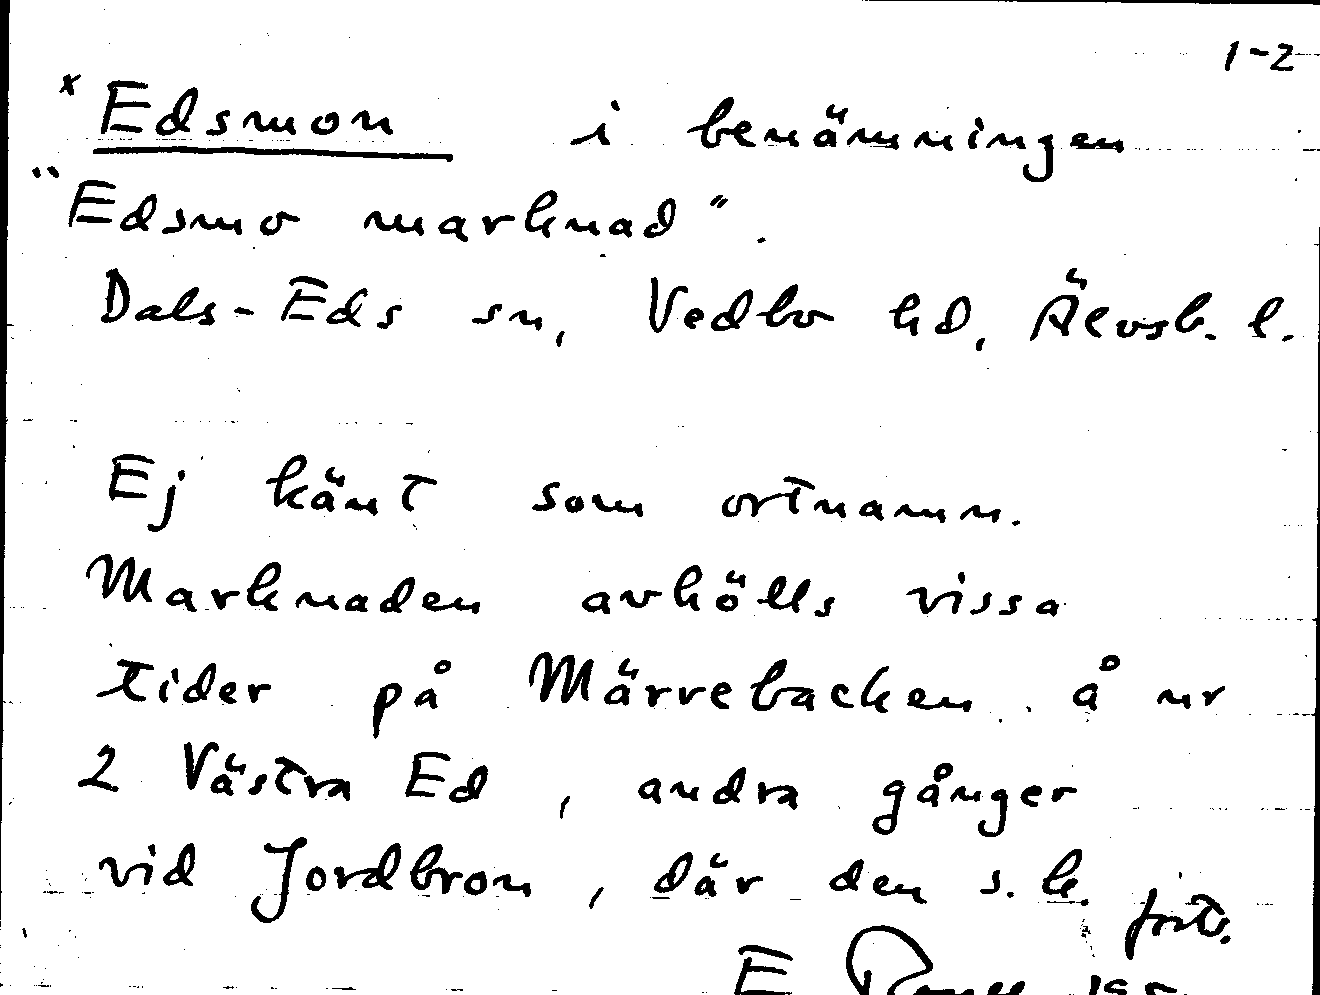 1-2
× Edsmon i benämningen
"Edsmo marknad".
Dals-Eds sn, Vedbo hd, Älvsb. l.
Ej känt som ortnamn.
Marknaden avhölls vissa
tider på Märrebacken å nr
2 Västra Ed, andra gånger
vid Jordbron, där den s.k.
forts.
E